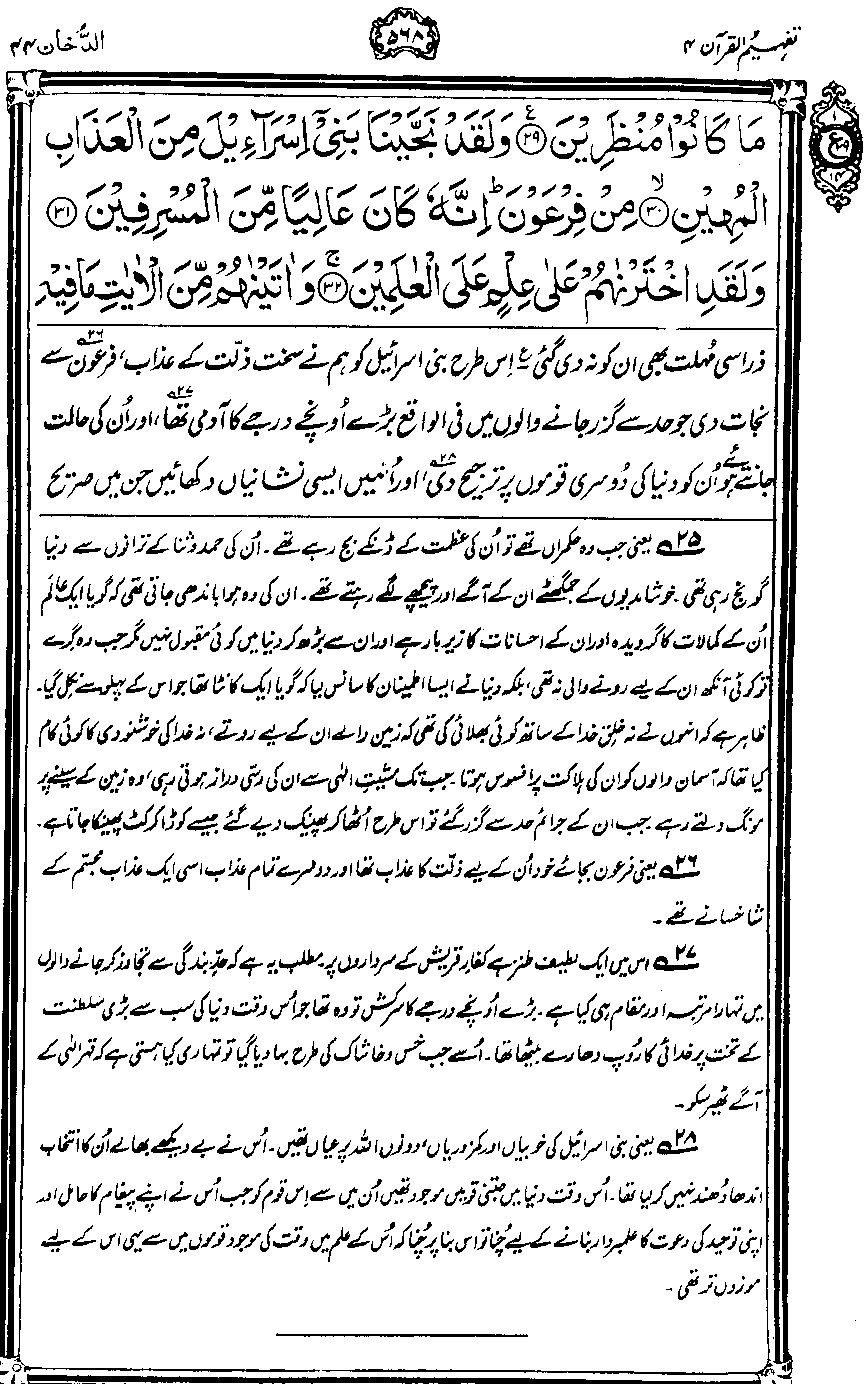 تفہیم القرآن ۴
۵۶۸
الدُّخان ۴۴
مَا كَانُوۡا مُنۡظَرِيۡنَ ﴿۲۹﴾ وَلَقَدۡ نَجَّيۡنَا بَنِىۡۤ اِسۡرَآءِيۡلَ مِنَ الۡعَذَابِ
الۡمُهِيۡنِ ﴿۳۰﴾ۙ مِنۡ فِرۡعَوۡنَ‌ؕ اِنَّهٗ كَانَ عَالِيًا مِّنَ الۡمُسۡرِفِيۡنَ ﴿۳۱﴾
وَلَقَدِ اخۡتَرۡنٰهُمۡ عَلٰى عِلۡمٍ عَلَى الۡعٰلَمِيۡنَ‌ۚ ﴿۳۲﴾ وَاٰتَيۡنٰهُمۡ مِّنَ الۡاٰيٰتِ مَا فِيۡهِ
ذرا سی مُہلت بھی ان کو نہ دی گئی ؏ اِس طرح بنی اسرائیل کو ہم نے سخت ذلّت کے عذاب، فرعون۲۶ سے
نجات دی جو حد سے گزر جانے والوں میں فی الواقع بڑے اُونچے درجے کا آدمی تھا۲۷، اور اُن کی حالت
جانتے ہوئے اُن کو دنیا کی دُوسری قوموں پر ترجیح دی۲۸، اور اُنہیں ایسی نشانیاں دکھائیں جن میں صریح
۲۵ یعنی جب وہ حکمراں تھے تو اُن کی عظمت کے ڈنکے بج رہے تھے۔ اُن کی حمد و ثنا کے ترانوں سے دنیا
گونج رہی تھی۔ خوشامدیوں کے جمگھٹے ان کے آگے اور پیچھے لگے رہتے تھے۔ ان کی وہ ہوا باندھی جاتی تھی کہ گویا ایک عالَم
اُن کے کمالات کا گرویدہ اور ان کے احسانات کا زیر بار ہے اور ان سے بڑھ کر دنیا میں کوئی مقبول نہیں مگر جب وہ گرے
تو کوئی آنکھ ان کے لیے رونے والی نہ تھی، بلکہ دنیا نے ایسا اطمینان کا سانس لیا کہ گویا ایک کانٹا تھا جو اس کے پہلو سے نکل گیا۔
ظاہر ہے کہ انہوں نے نہ خلقِ خدا کے ساتھ کوئی بھلائی کی تھی کہ زمین والے ان کے لیے روتے، نہ خدا کی خوشنودی کا کوئی کام
کیا تھا کہ آسمان والوں کو ان کی ہلاکت پر افسوس ہوتا۔ جب تک مشیّتِ الٰہی سے ان کی رسّی دراز ہوتی رہی، وہ زمین کے سینے پر
مونگ دلتے رہے۔ جب ان کے جرائم حد سے گزر گئے تو اس طرح اُٹھا کر پھینک دیے گئے جیسے کوڑا کرکٹ پھینکا جاتا ہے۔
۲۶ یعنی فرعون بجائے خود اُن کے لیے ذلّت کا عذاب تھا اور دوسرے تمام عذاب اسی ایک عذابِ مجسّم کے
شاخسانے تھے۔
۲۷ اس میں ایک لطیف طنز ہے کفارِ قریش کے سرداروں پر۔ مطلب یہ ہے کہ حدِّ بندگی سے تجاوز کر جانے والوں
میں تمہارا مرتبہ اور مقام ہی کیا ہے۔ بڑے اُونچے درجے کا سرکش تو وہ تھا جو اُس وقت دنیا کی سب سے بڑی سلطنت
کے تخت پر خدائی کا رُوپ دھارے بیٹھا تھا۔ اُسے جب خس و خاشاک کی طرح بہا دیا گیا تو تمہاری کیا ہستی ہے کہ قہرِ الٰہی کے
آگے ٹھیر سکو۔
۲۸ یعنی بنی اسرائیل کی خوبیاں اور کمزوریاں، دونوں اللہ پر عیاں تھیں۔ اُس نے بے دیکھے بھالے اُن کا انتخاب
اندھا دُھند نہیں کر لیا تھا۔ اُس وقت دنیا میں جتنی قومیں موجود تھیں اُن میں سے اِس قوم کو جب اُس نے اپنے پیغام کا حامل اور
اپنی توحید کی دعوت کا علمبردار بنانے کے لیے چُنا تو اس بنا پر چُنا کہ اُس کے علم میں وقت کی موجود قوموں میں سے یہی اس کے لیے
موزوں تر تھی۔